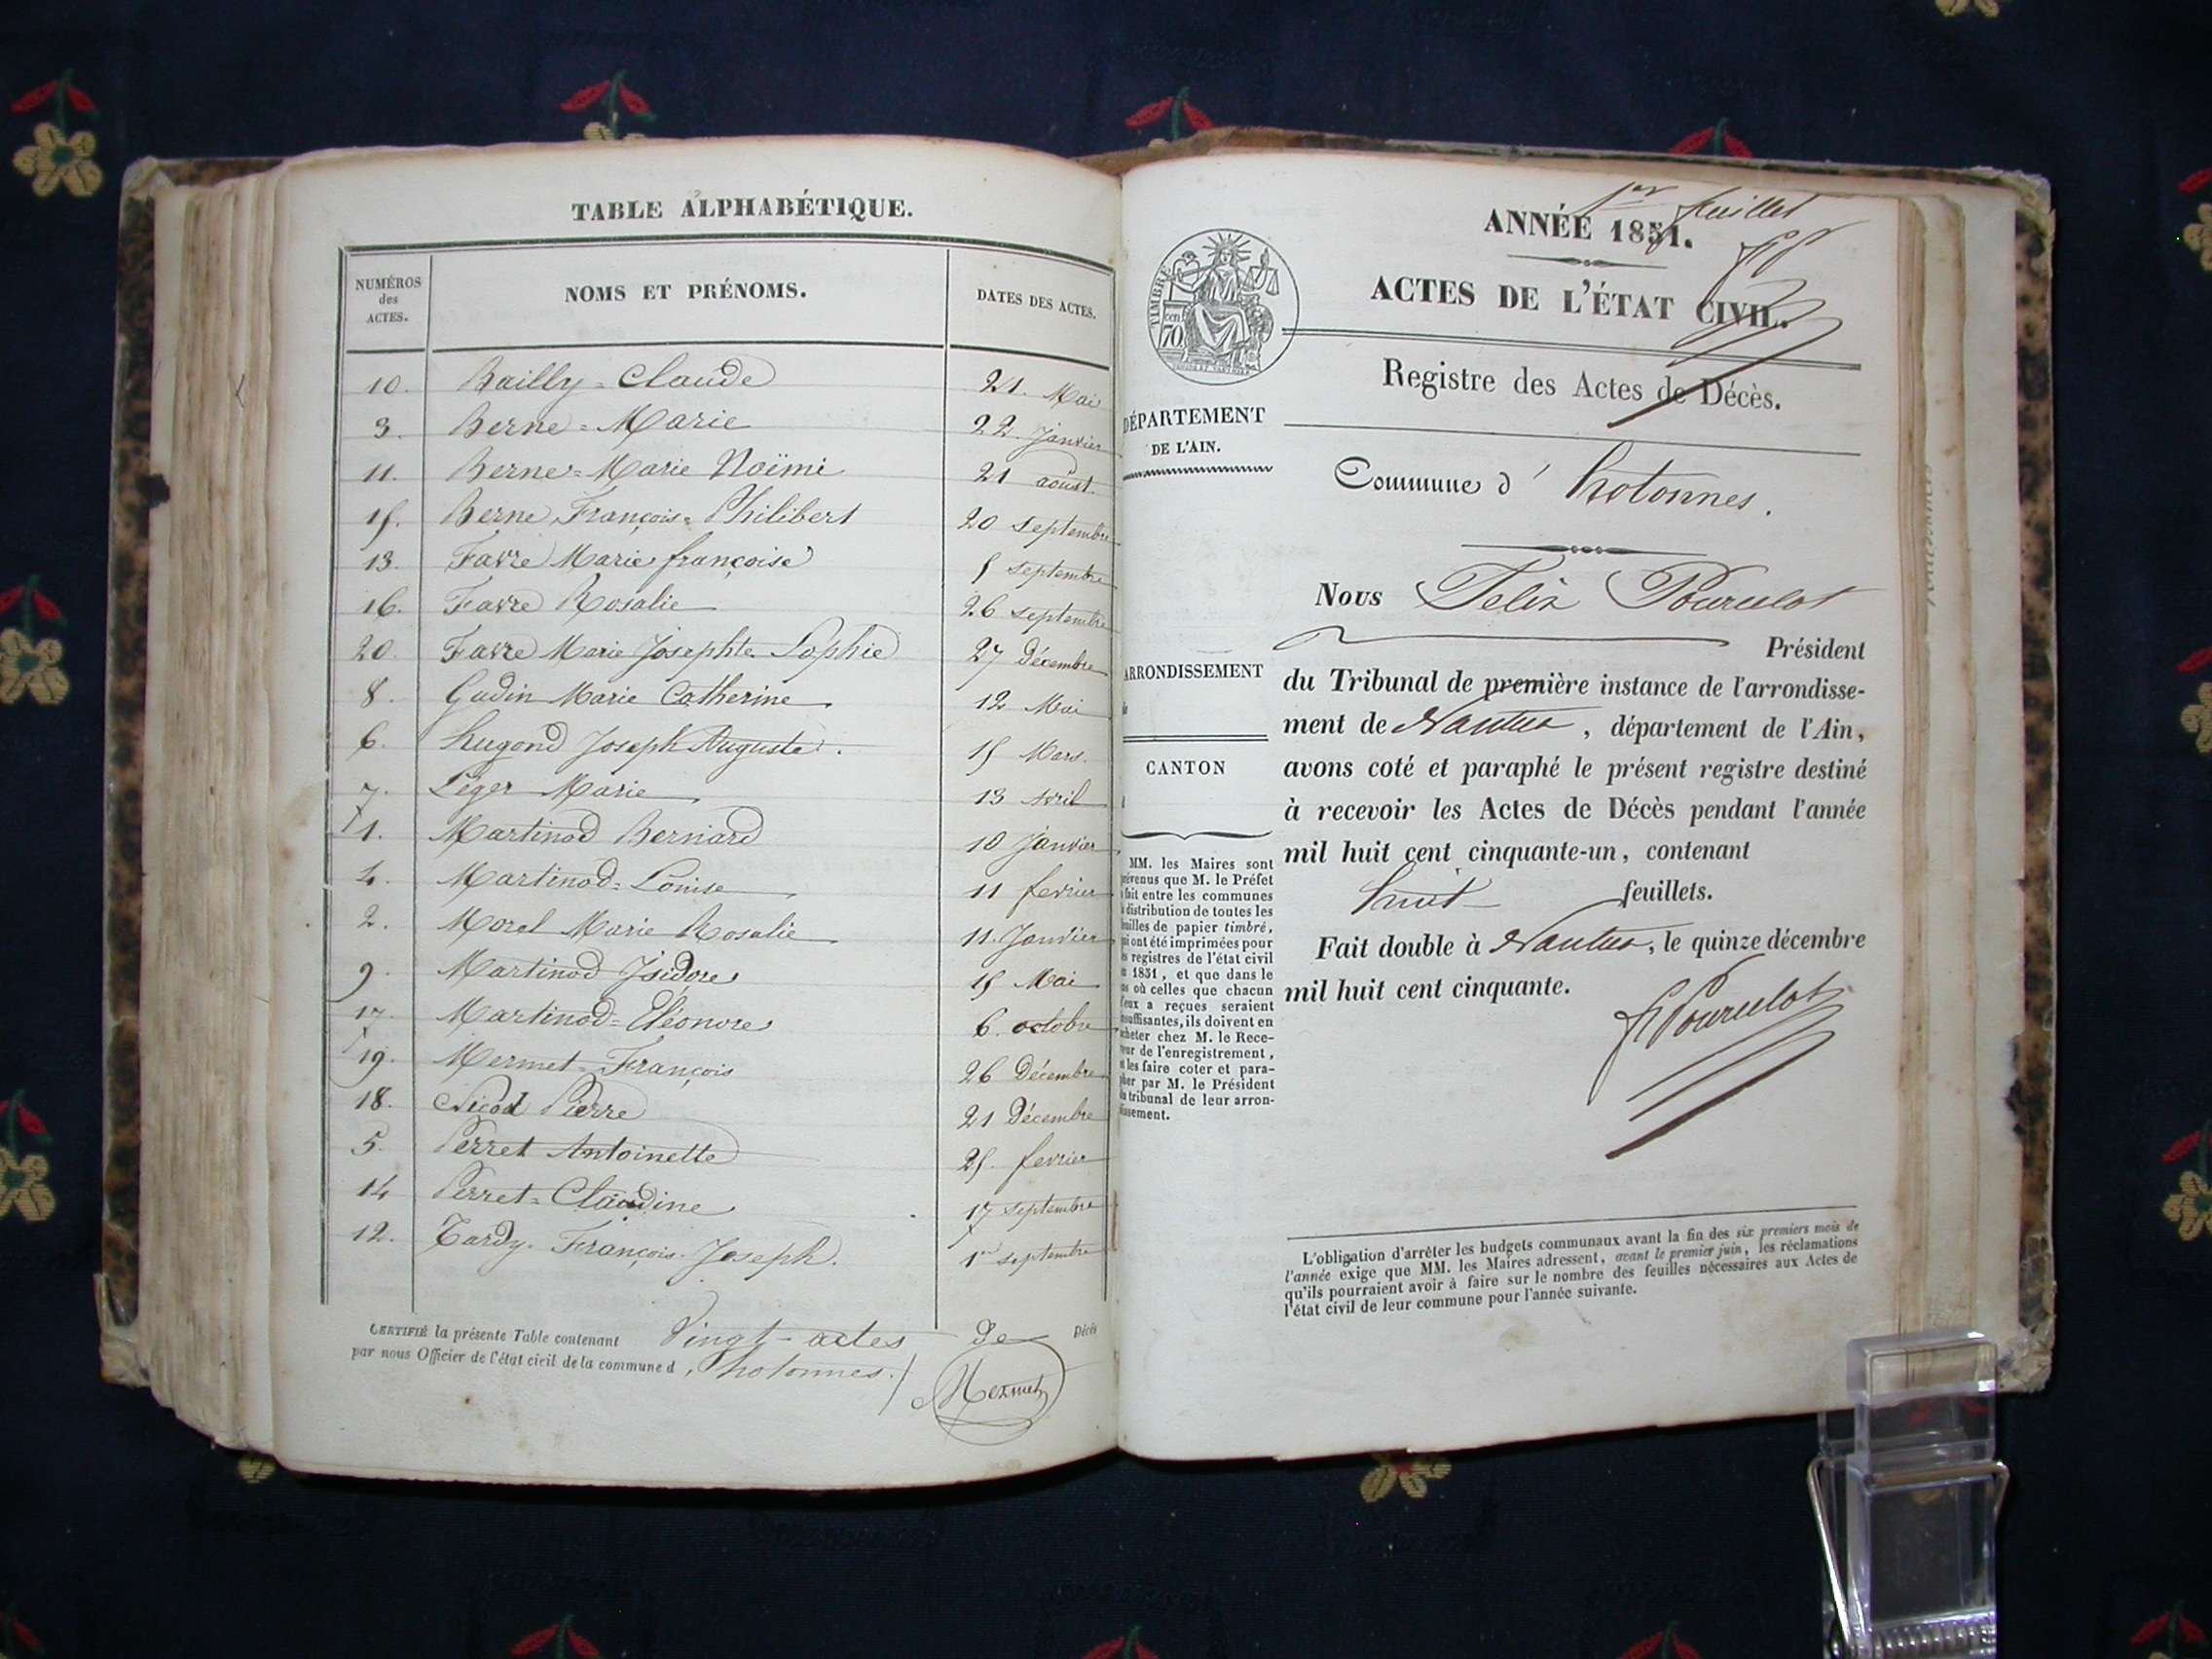 TABLE ALPHABÉTIQUE.
NUMÉROS des ACTES. NOMS ET PRÉNOMS. DATES DES ACTES.
10. Bailly = Claude 21. Mai
3. Berne = Marie 22. Janvier
11. Berne = Marie Noëmi 21 aoust.
15. Berne François = Philibert 20 septembre
13. Favre Marie françoise 5 septembre
16. Favre Rosalie 26 septembre
20. Favre Marie Josephte Sophie 27 Décembre
8. Gudin Marie Catherine 12 Mai
6. hugond Joseph Auguste. 15 Mars.
7. Léger Marie 13 Avril
1. Martinod Bernard 10 Janvier
4. Martinod = Louise 11 fevrier
2. Morel Marie Rosalie 11. Janvier
9. Martinod Isidore 15 Mai
17. Martinod = Eléonore 6. octobre
19. Mermet = François 26 Décembre
18. Nicod Pierre 21 Décembre
5. Perret Antoinette 25. fevrier
14 Perret = Claudine 17 septembre
12. Tardy. François. Joseph. 1er septembre
CERTIFIÉ la présente Table contenant Vingt-actes de Décès
par nous Officier de l'état civil de la commune d, hotonnes.
Mermet
1er feuillet
ANNÉE 1851.
ACTES DE L'ÉTAT CIVIL.
Registre des Actes de Décès.
TIMBRE
cen
70
DÉPARTEMENT
DE L'AIN.
ARRONDISSEMENT
CANTON
MM. les Maires sont
prévenus que M. le Préfet
a fait entre les communes
la distribution de toutes les
feuilles de papier timbré,
qui ont été imprimées pour
les registres de l'état civil
en 1851, et que dans le
cas où celles que chacun
d'eux a reçues seraient
insuffisantes, ils doivent en
acheter chez M. le Rece-
veur de l'enregistrement,
et les faire coter et para-
pher par M. le Président
du tribunal de leur arron-
dissement.
Commune d' hotonnes.
Nous Felix Pourcelot
Président
du Tribunal de première instance de l'arrondisse-
ment de Nantua, département de l'Ain,
avons coté et paraphé le présent registre destiné
à recevoir les Actes de Décès pendant l'année
mil huit cent cinquante-un, contenant
huit feuillets.
Fait double à Nantua, le quinze décembre
mil huit cent cinquante.
F Pourcelot
L'obligation d'arrêter les budgets communaux avant la fin des six premiers mois de
l'année exige que MM. les Maires adressent, avant le premier juin, les réclamations
qu'ils pourraient avoir à faire sur le nombre des feuilles nécessaires aux Actes de
l'état civil de leur commune pour l'année suivante.